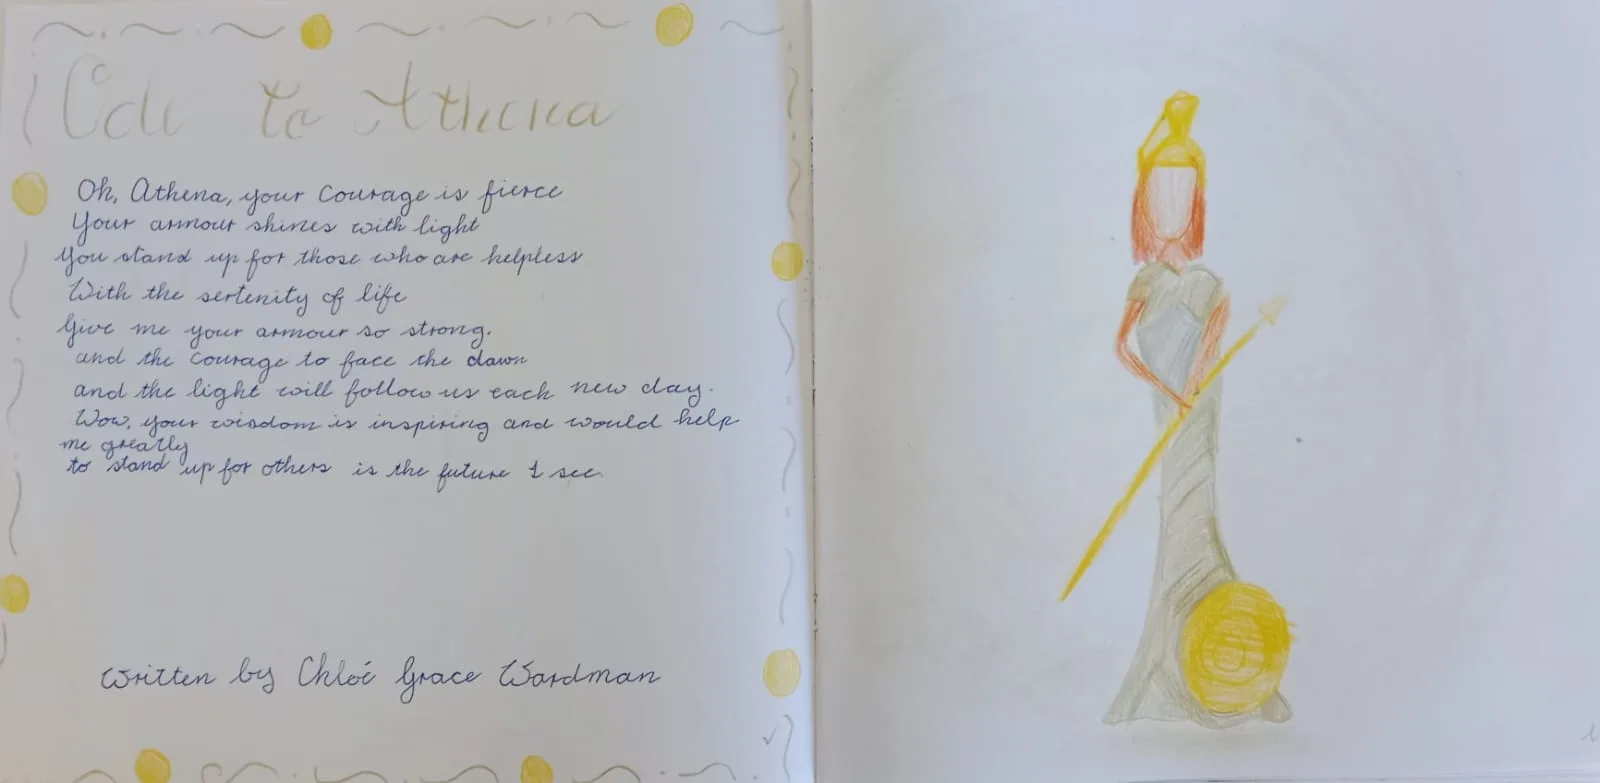 Ode to Athena
Oh, Athena, your courage is fierce
Your armour shines with light
You stand up for those who are helpless
With the sertenity of life
Give me your armour so strong.
and the courage to face the dawn
and the light will follow us each new day.
Wow, your wisdom is inspiring and would help
me greatly
to stand up for others is the future I see.
Written by Chloé Grace Wardman